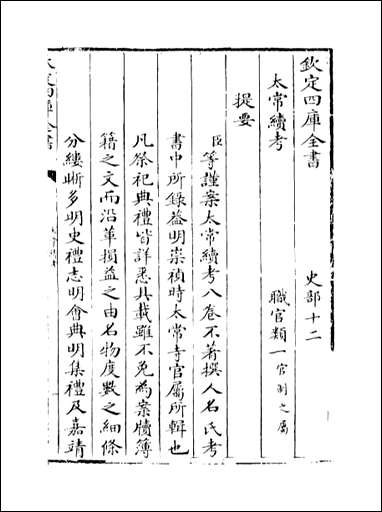 欽定四庫全書　史部十二
太常續考　職官類一官制之屬
提要
臣等謹案太常續考八卷不著撰人名氏考
書中所錄益明崇禎時太常寺官屬所輯也
凡祭祀典禮皆詳悉具載雖不免為案牘簿
籍之文而沿革損益之由名物度數之細條
分縷晰多明史禮志明會典明集禮及嘉靖